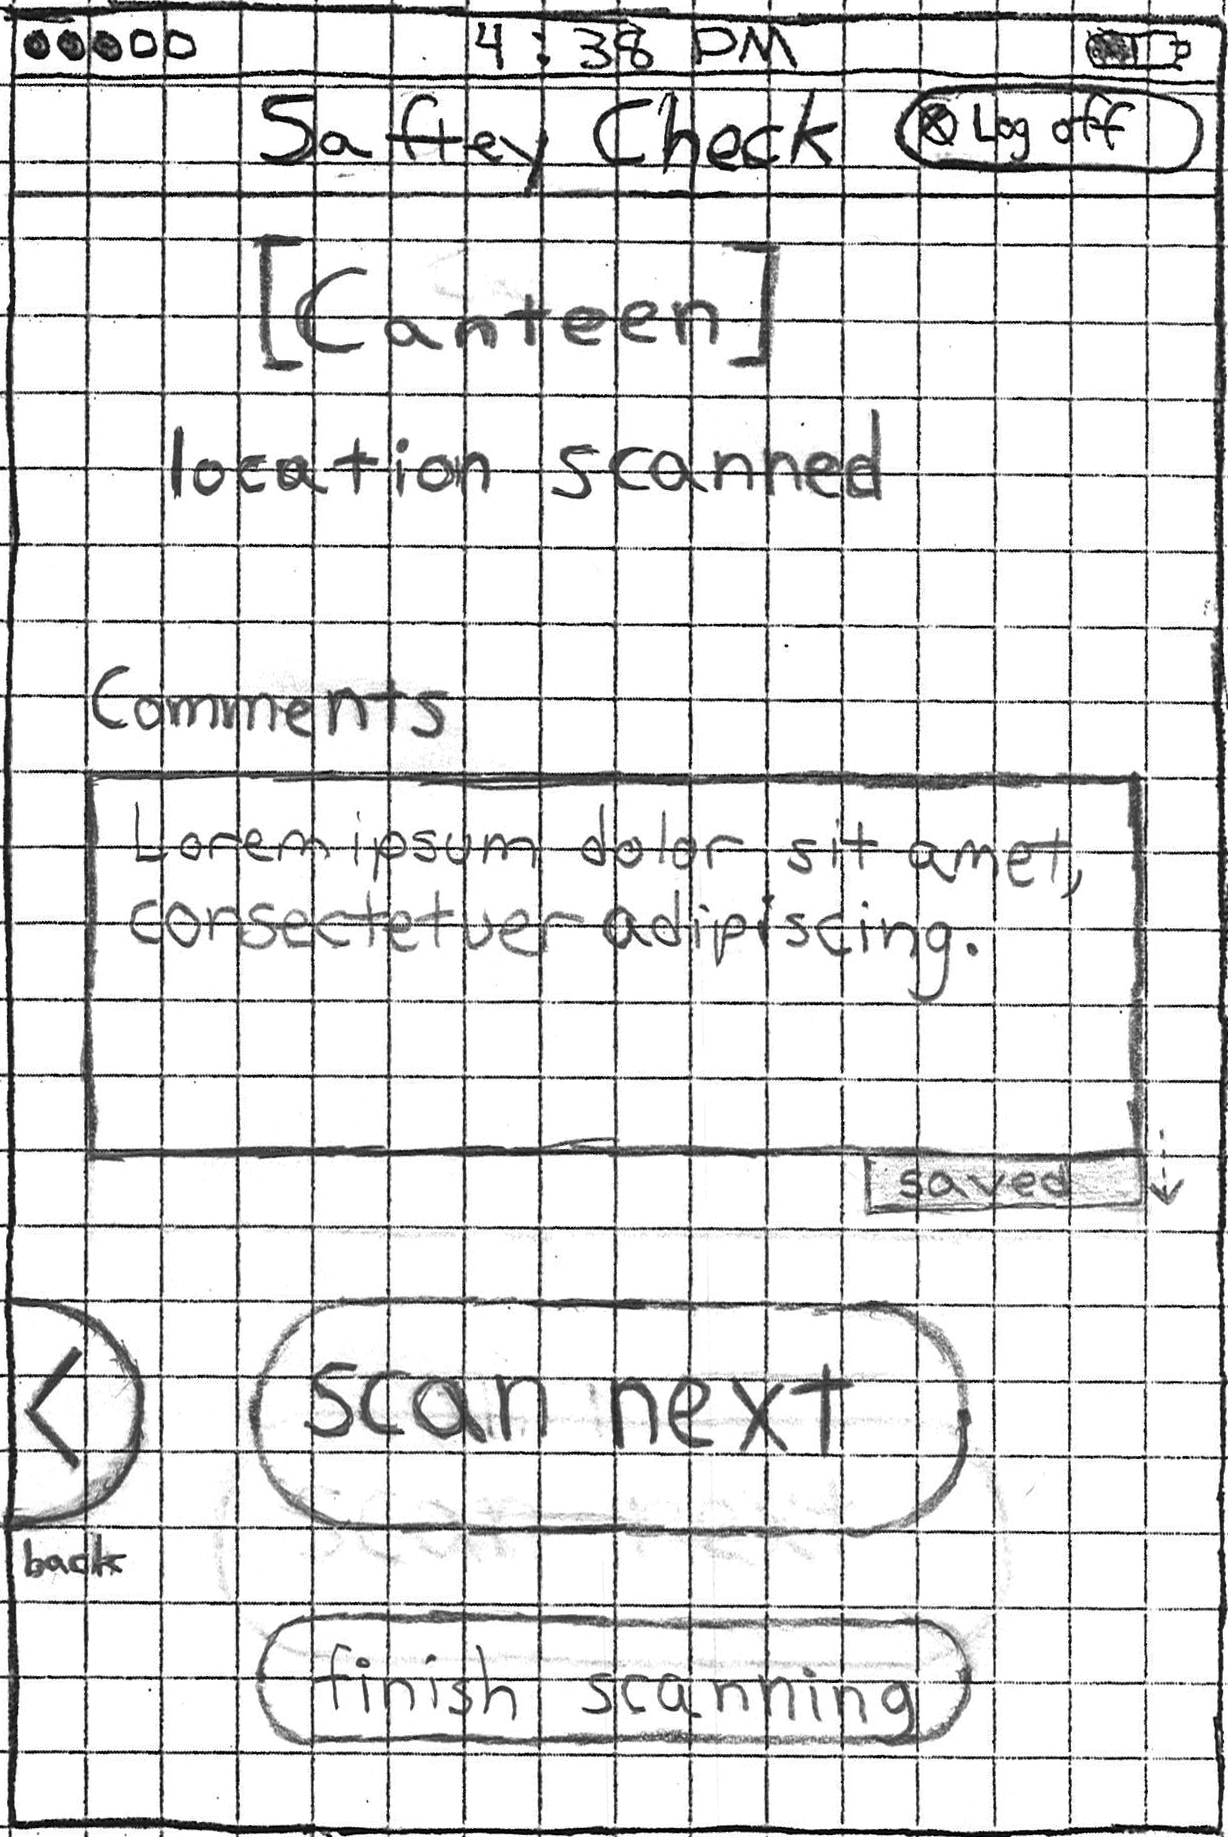 4:38 PM
Saftey Check
Log off
[Canteen]
location scanned
Comments
Lorem ipsum dolor sit amet,
consectetuer adipiscing.
saved
scan next
back
finish scanning